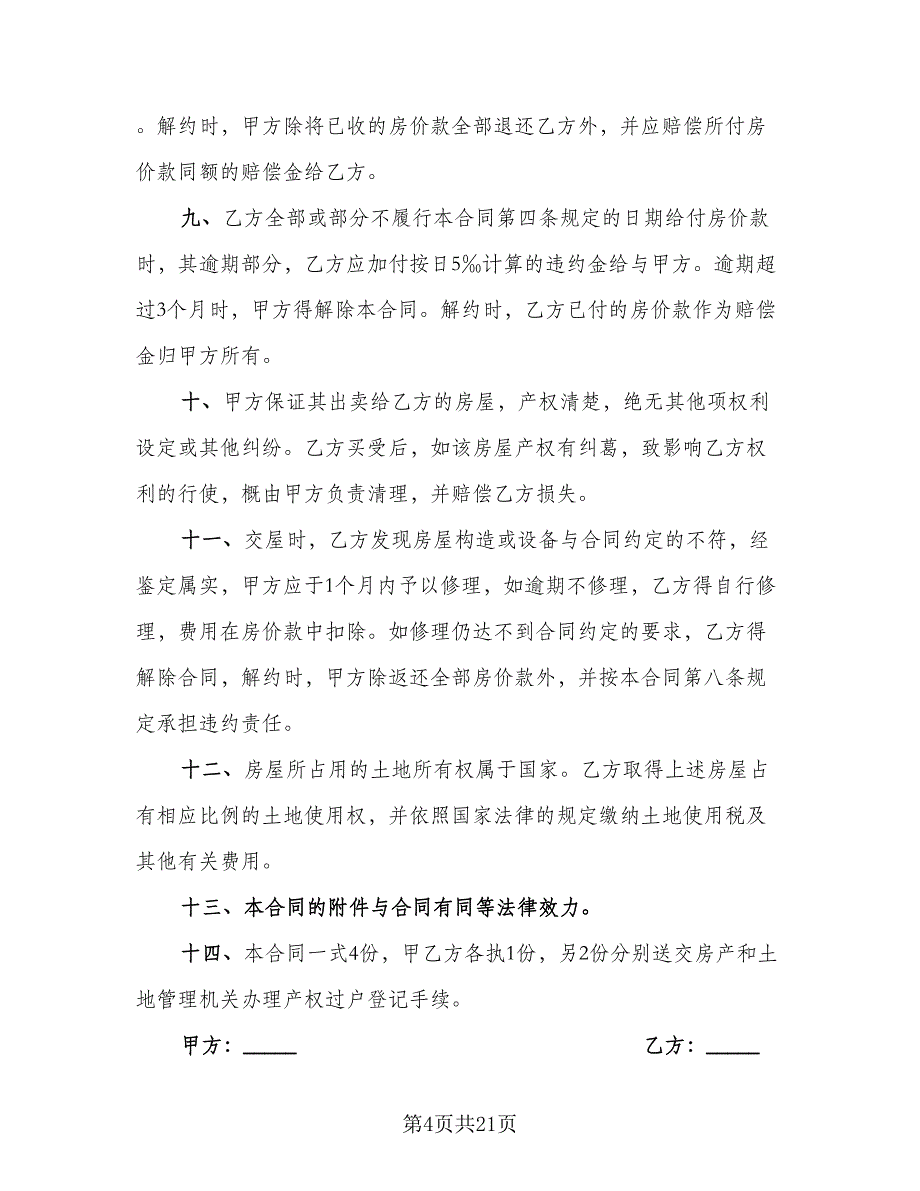 。解约时，甲方除将已收的房价款全部退还乙方外，并应赔偿所付房
价款同额的赔偿金给乙方。
九、乙方全部或部分不履行本合同第四条规定的日期给付房价款
时，其逾期部分，乙方应加付按日5‰计算的违约金给与甲方。逾期超
过3个月时，甲方得解除本合同。解约时，乙方已付的房价款作为赔偿
金归甲方所有。
十、甲方保证其出卖给乙方的房屋，产权清楚，绝无其他项权利
设定或其他纠纷。乙方买受后，如该房屋产权有纠葛，致影响乙方权
利的行使，概由甲方负责清理，并赔偿乙方损失。
十一、交屋时，乙方发现房屋构造或设备与合同约定的不符，经
鉴定属实，甲方应于1个月内予以修理，如逾期不修理，乙方得自行修
理，费用在房价款中扣除。如修理仍达不到合同约定的要求，乙方得
解除合同，解约时，甲方除返还全部房价款外，并按本合同第八条规
定承担违约责任。
十二、房屋所占用的土地所有权属于国家。乙方取得上述房屋占
有相应比例的土地使用权，并依照国家法律的规定缴纳土地使用税及
其他有关费用。
十三、本合同的附件与合同有同等法律效力。
十四、本合同一式4份，甲乙方各执1份，另2份分别送交房产和土
地管理机关办理产权过户登记手续。
甲方：_____ 乙方：_____
第4页共21页